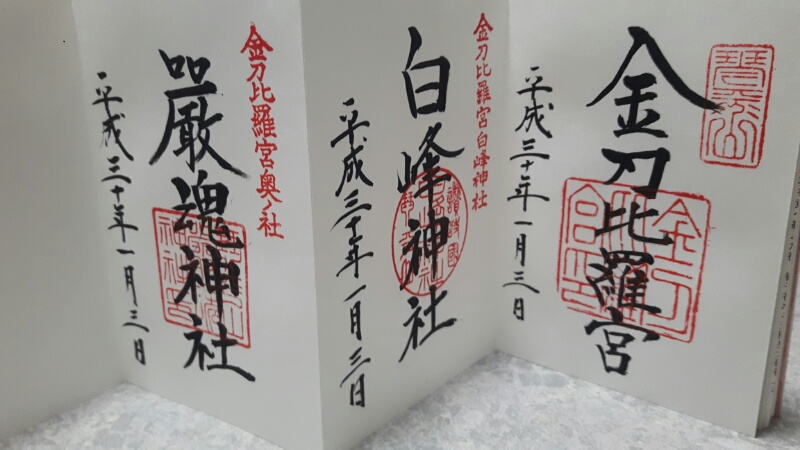 金刀比羅宮
平成三十年一月三日
金刀比羅宮白峰神社
白峰神社
平成三十年一月三日
金刀比羅宮奥社
嚴魂神社
平成三十年一月三日